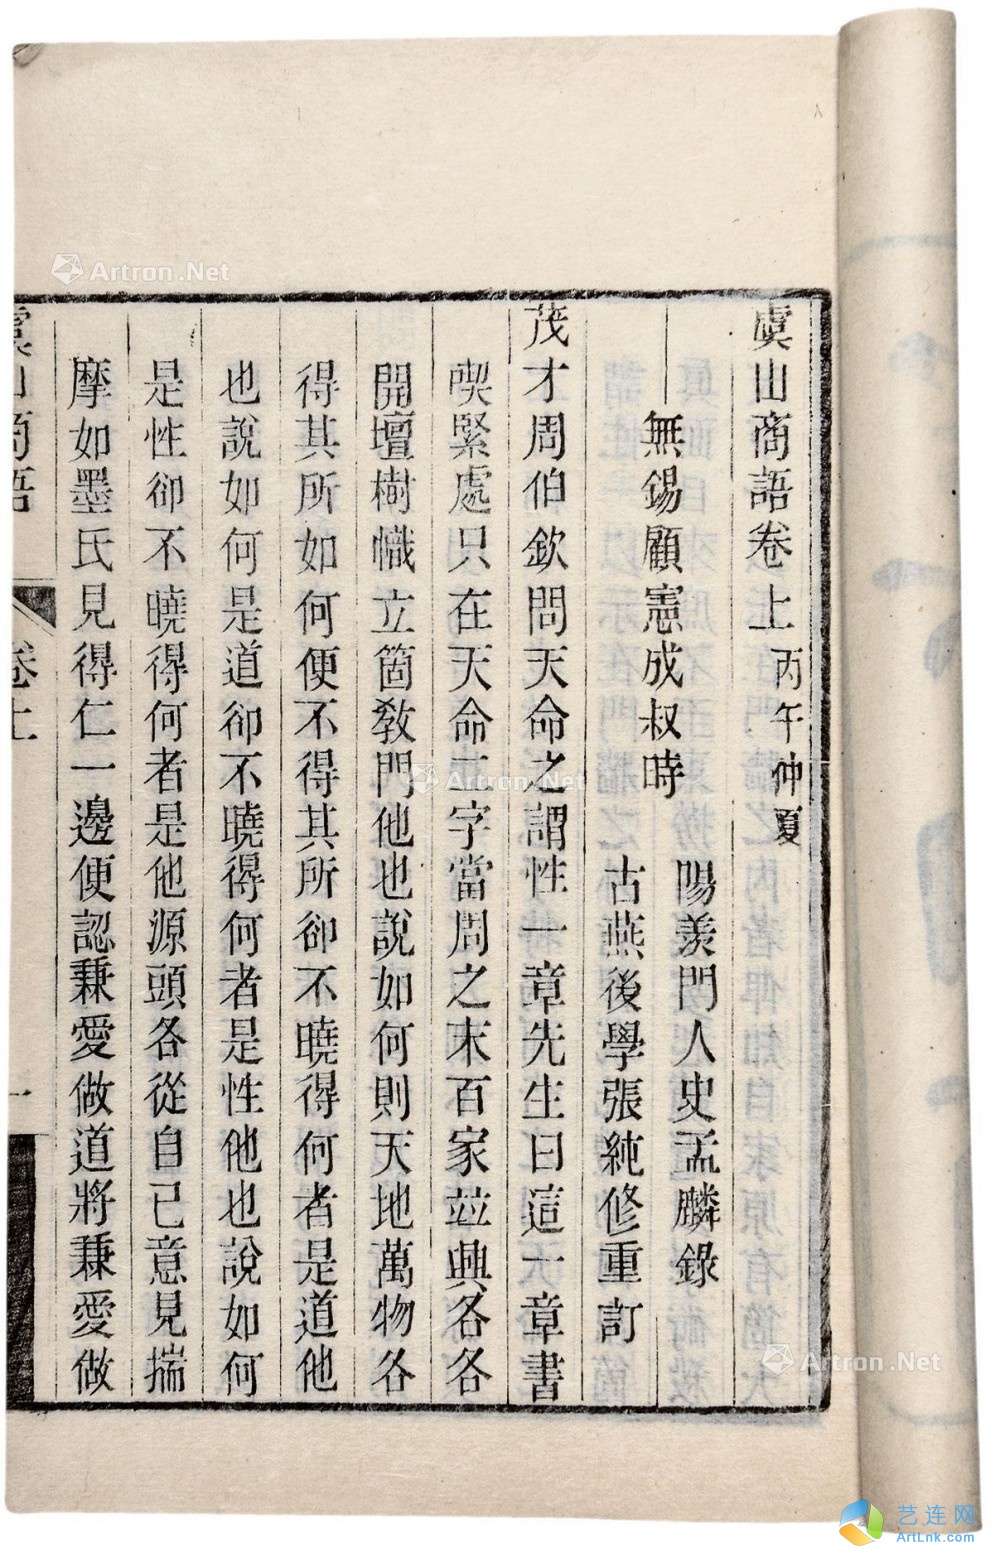 虞山商語卷上 丙午仲夏
無錫顧憲成叔時
陽羨門人史孟麟錄
古燕後學張純修重訂
茂才周伯欽問天命之謂性一章先生曰這一章書
喫緊處只在天命二字當周之末百家竝興各各
開壇樹幟立箇教門他也說如何則天地萬物各
得其所如何便不得其所卻不曉得何者是道他
也說如何是道卻不曉得何者是性他也說如何
是性卻不曉得何者是他源頭各從自己意見揣
摩如墨氏見得仁一邊便認兼愛做道將兼愛做
虞山商語
卷上
一
Artron.Net
Artron.Net
Artron.Net
艺连网
ArtLnk.com